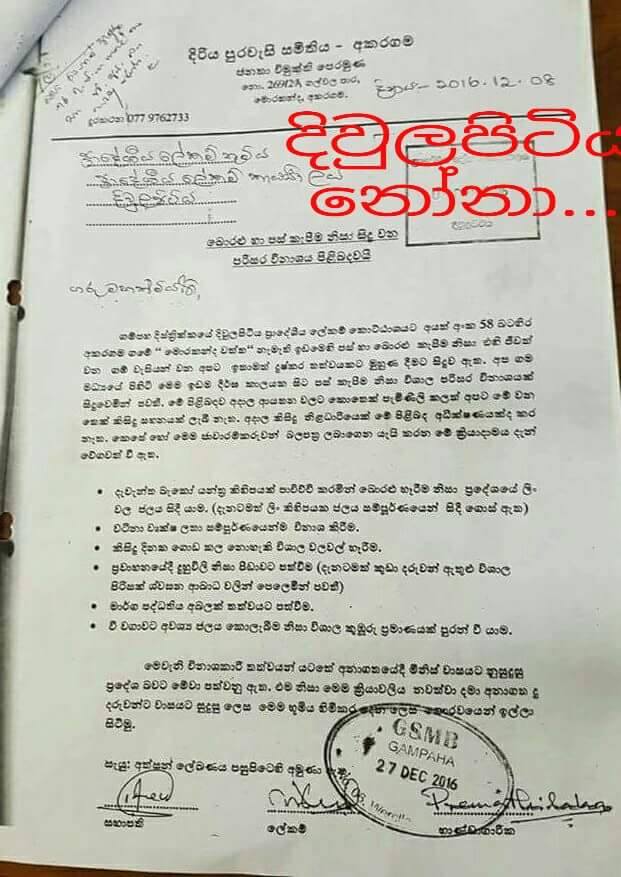 දිරිය පුරවැසි සමිතිය - අකරගම
ජනතා විමුක්ති පෙරමුණ
නො. 269/2A ගල්වල පාර,
මොරකන්ද, අකරගම.
දිනය - 2016.12.08
දුරකථන 077 9762733
දිවුලපිටිය
නෝනා...
ප්‍රාදේශීය ලේකම් තුමිය
ප්‍රාදේශීය ලේකම් කාර්යාලය
දිවුලපිටිය
බොරළු හා පස් කැපීම නිසා සිදු වන
පරිසර විනාශය පිළිබඳවයි
ගරු මහත්මියනි,
ගම්පහ දිස්ත්‍රික්කයේ දිවුලපිටිය ප්‍රාදේශීය ලේකම් කොට්ඨාශයට අයත් අංක 58 බටහිර
අකරගම ගමේ " මොරකන්ද වත්ත" නැමැති ඉඩමෙහි පස් හා බොරළු කැපීම නිසා එහි ජීවත්
වන ගම් වැසියන් වන අපට ඉතාමත් දුෂ්කර තත්වයකට මුහුණ දීමට සිදුව ඇත. අප ගම
මධ්‍යයේ පිහිටි මෙම ඉඩම දීර්ඝ කාලයක සිට පස් කැපීම නිසා විශාල පරිසර විනාශයක්
සිදුවෙමින් පවතී. මේ පිළිබඳව අදාල ආයතන වලට කොතෙක් පැමිණිලි කලත් අපට මේ වන
තෙක් කිසිදු සහනයක් ලැබී නැත. අදාල කිසිදු නිළධාරියෙක් මේ පිළිබඳ අධීක්ෂණයක්ද කර
නැත. කෙසේ හෝ මෙම ජාවාරම්කරුවන් බලපත්‍ර ලබාගෙන යැයි කරන මේ ක්‍රියාදාමය දැන්
වේගවත් වී ඇත.
• දැවැන්ත බැකෝ යන්ත්‍ර කිහිපයක් පාවිච්චි කරමින් බොරළු හෑරීම නිසා ප්‍රදේශයේ ලිං
වල ජලය සිදී යාම. (දැනටමත් ලිං කිහිපයක ජලය සම්පූර්ණයෙන් සිදී ගොස් ඇත)
• වටිනා වෘක්ෂ ලතා සම්පූර්ණයෙන්ම විනාශ කිරීම.
• කිසිදු දිනක ගොඩ කල නොහැකි විශාල වලවල් හෑරීම.
• ප්‍රවාහනයේදී දූහුවිලි නිසා පීඩාවට පත්වීම (දැනටමත් කුඩා දරුවන් ඇතුළු විශාල
පිරිසක් ශ්වසන ආබාධ වලින් පෙලෙමින් පවතී)
• මාර්ග පද්ධතිය අබලක් තත්වයට පත්වීම.
• වී වගාවට අවශ්‍ය ජලය කොලැබීම නිසා විශාල කුඹුරු ප්‍රමාණයක් පුරන් වී යාම.
මෙවැනි විනාශකාරී තත්වයන් යටතේ අනාගතයේදී මිනිස් වාසයට නුසුදුසු
ප්‍රදේශ බවට මේවා පත්වනු ඇත. එම නිසා මෙම ක්‍රියාවලිය නවත්වා දමා අනාගත දූ
දරුවන්ට වාසයට සුදුසු ලෙස මෙම භූමිය හිමිකර දෙන ලෙස ගෞරවයෙන් ඉල්ලා
සිටිමු.
සැයු: අත්සන් ලේඛණය පසුපිටෙහි අමුණා ඇත.
GSMB
GAMPAHA
27 DEC 2016
Premathilaka
සභාපති ලේකම් භාණ්ඩාගාරික